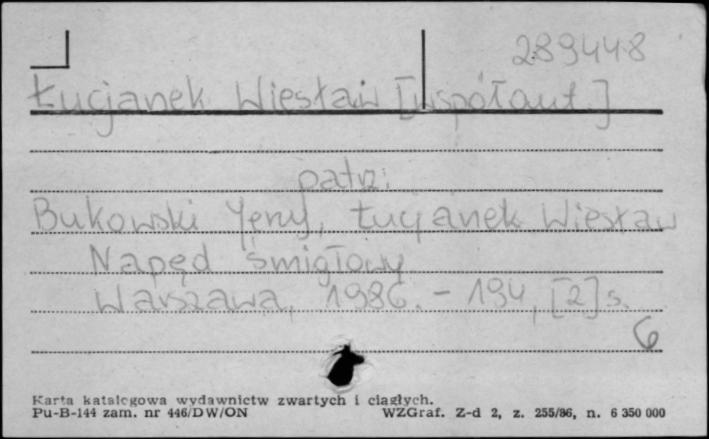 289448
Łucjanek Wiesław [współaut.]
patrz:
Bukowski Jerzy, Łucjanek Wiesław
Napęd śmigłowy
Warszawa, 1986. - 194, [2] s.
6
Karta katalogowa wydawnictw zwartych i ciągłych.
Pu-B-144 zam. nr 446/DW/ON WZGraf. Z-d 2, z. 255/86, n. 6 350 000